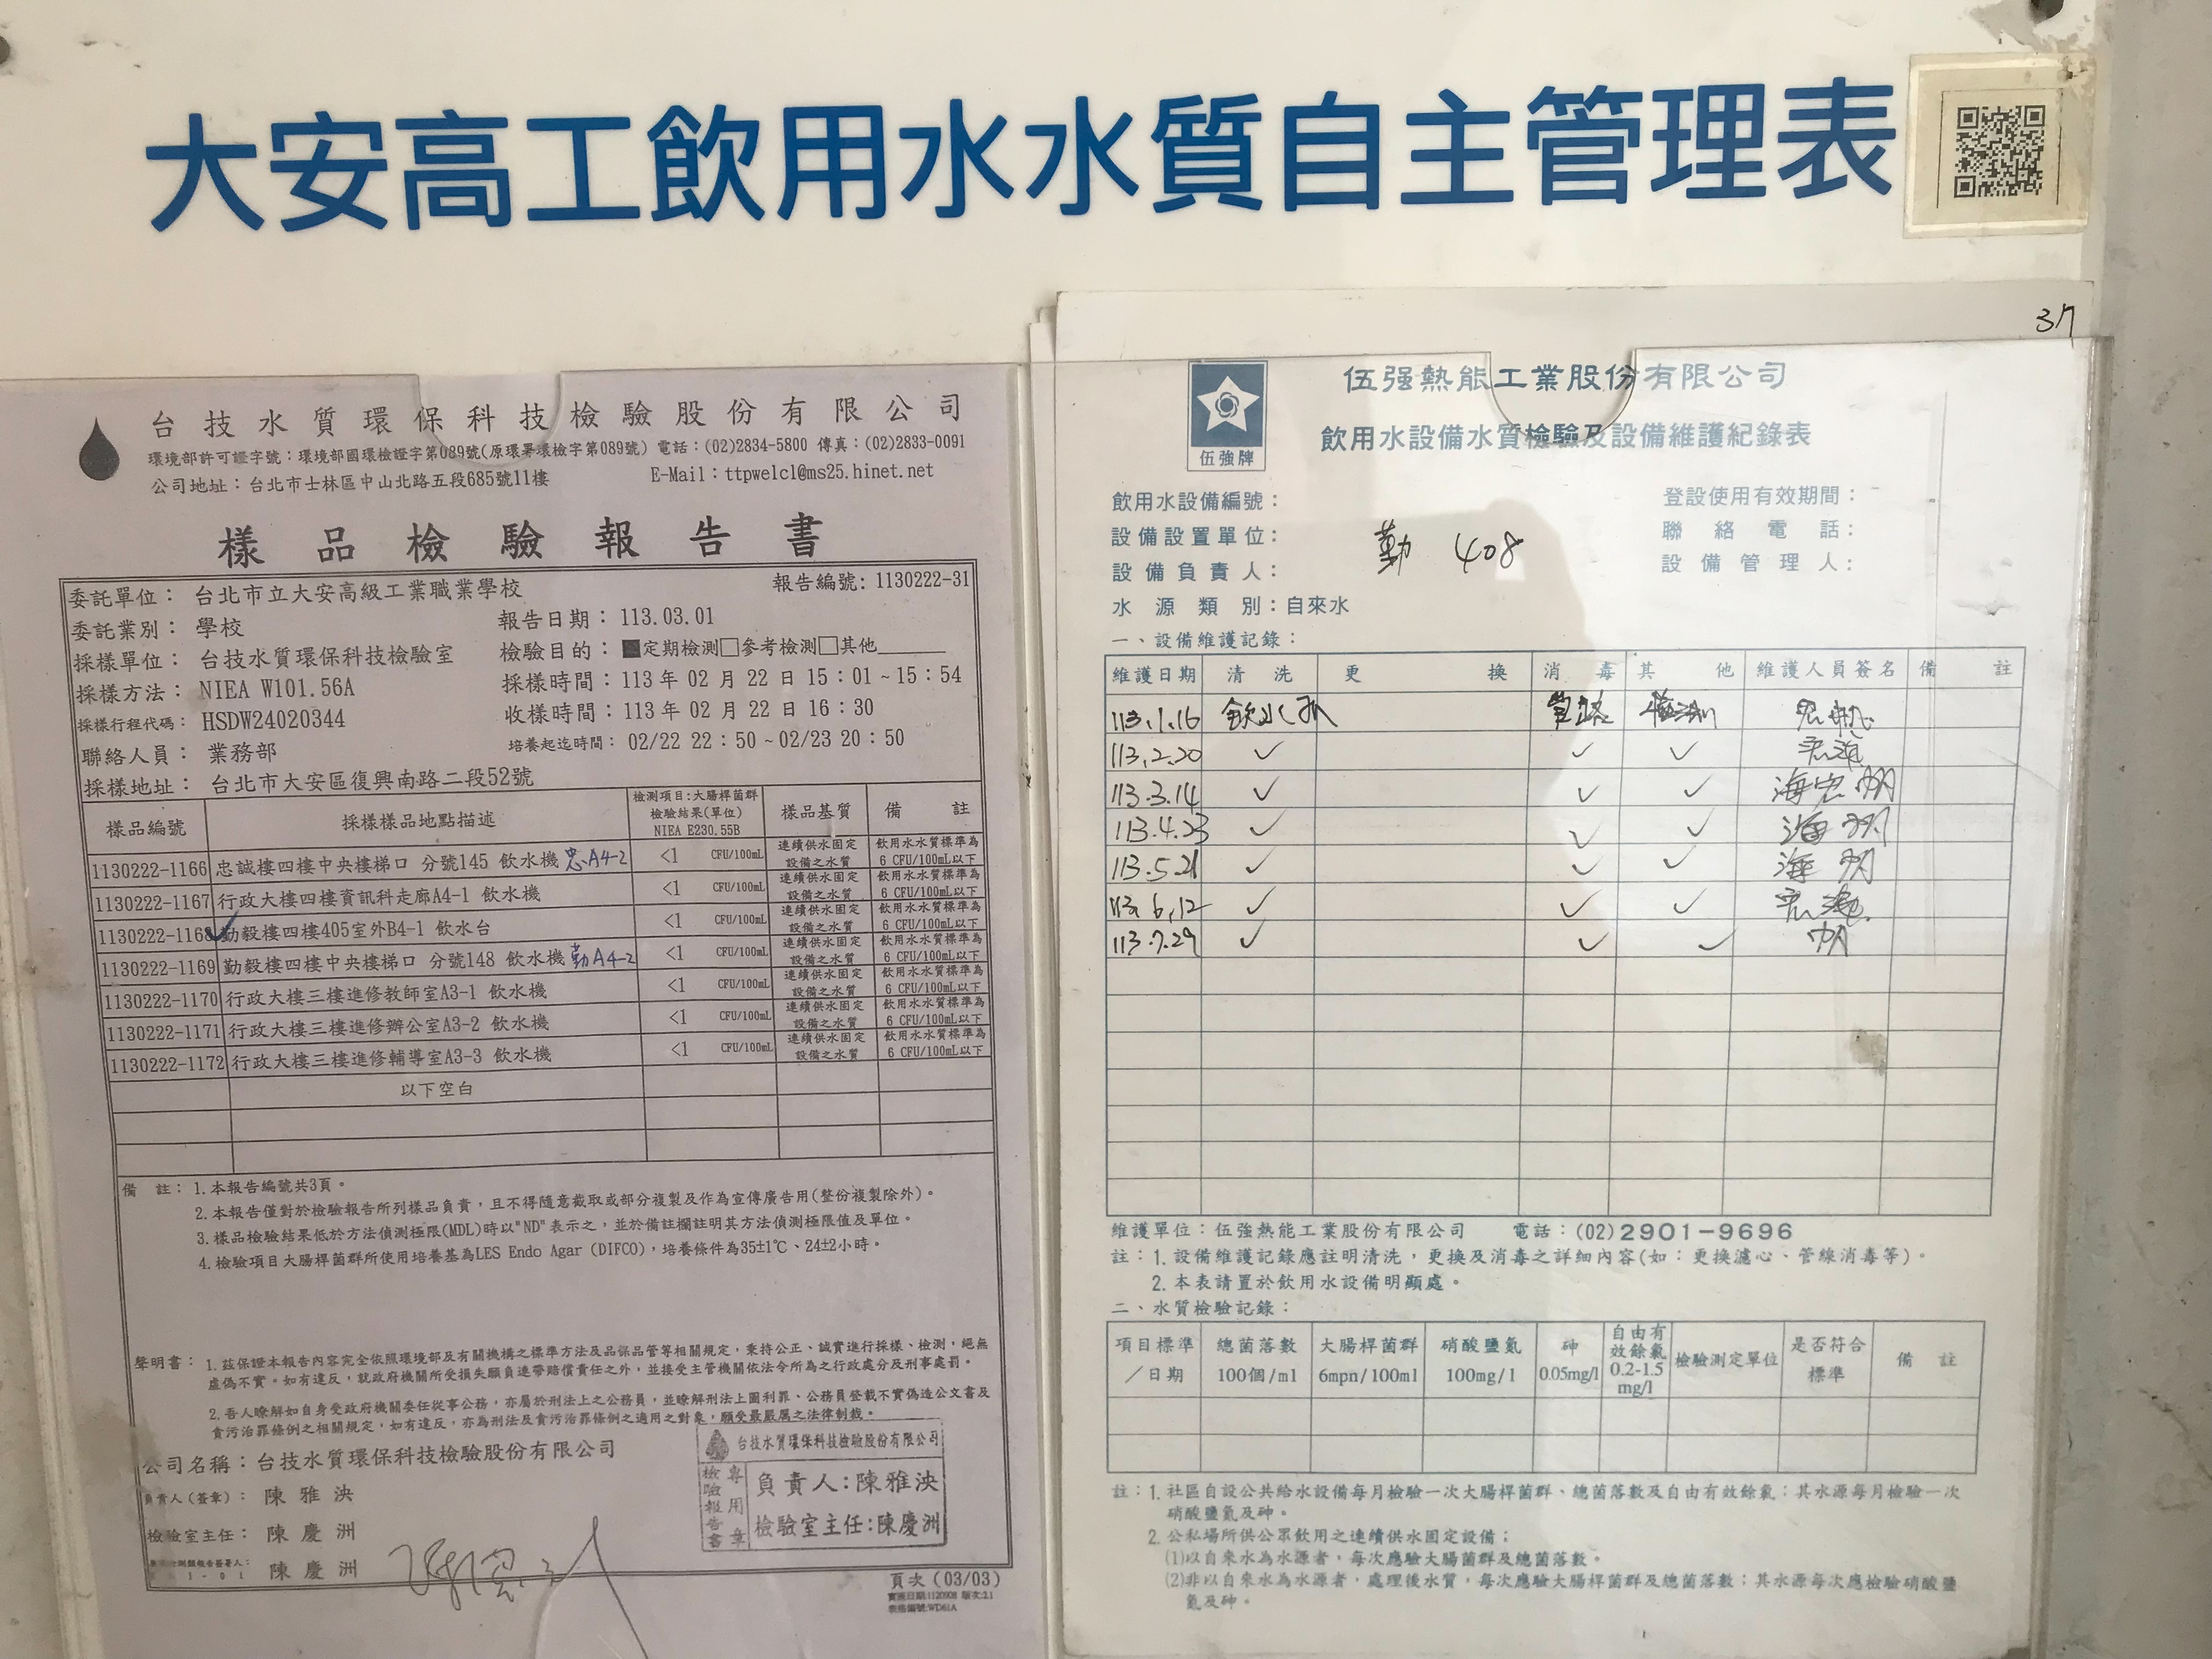 大安高工飲用水水質自主管理表
台技水質環保科技檢驗股份有限公司
環境部許可證字號：環境部國環檢證字第089號(原環署環檢字第089號) 電話：(02)2834-5800 傳真：(02)2833-0091
公司地址：台北市士林區中山北路五段685號11樓 E-Mail：ttpwelcl@ms25.hinet.net
樣品檢驗報告書
委託單位：台北市立大安高級工業職業學校 報告編號：1130222-31
委託業別：學校 報告日期：113.03.01
採樣單位：台技水質環保科技檢驗室 檢驗目的：■定期檢測□參考檢測□其他
採樣方法：NIEA W101.56A 採樣時間：113 年 02 月 22 日 15：01 ~ 15：54
採樣行程代碼：HSDW24020344 收樣時間：113 年 02 月 22 日 16：30
聯絡人員：業務部 培養起迄時間：02/22 22：50 ~ 02/23 20：50
採樣地址：台北市大安區復興南路二段52號
樣品編號 採樣樣品地點描述 檢測項目：大腸桿菌群 檢驗結果(單位) NIEA E230.55B 樣品基質 備註
1130222-1166 忠誠樓四樓中央樓梯口 分號145 飲水機 忠A4-2 <1 CFU/100mL 連續供水固定設備之水質 飲用水水質標準為6 CFU/100mL以下
1130222-1167 行政大樓四樓資訊科走廊A4-1 飲水機 <1 CFU/100mL 連續供水固定設備之水質 飲用水水質標準為6 CFU/100mL以下
1130222-1168 勤毅樓四樓405室外B4-1 飲水台 <1 CFU/100mL 連續供水固定設備之水質 飲用水水質標準為6 CFU/100mL以下
1130222-1169 勤毅樓四樓中央樓梯口 分號148 飲水機 勤A4-2 <1 CFU/100mL 連續供水固定設備之水質 飲用水水質標準為6 CFU/100mL以下
1130222-1170 行政大樓三樓進修教師室A3-1 飲水機 <1 CFU/100mL 連續供水固定設備之水質 飲用水水質標準為6 CFU/100mL以下
1130222-1171 行政大樓三樓進修辦公室A3-2 飲水機 <1 CFU/100mL 連續供水固定設備之水質 飲用水水質標準為6 CFU/100mL以下
1130222-1172 行政大樓三樓進修輔導室A3-3 飲水機 <1 CFU/100mL 連續供水固定設備之水質 飲用水水質標準為6 CFU/100mL以下
以下空白
備註：1.本報告編號共3頁。
2.本報告僅對於檢驗報告所列樣品負責，且不得隨意截取或部分複製及作為宣傳廣告用(整份複製除外)。
3.樣品檢驗結果低於方法偵測極限(MDL)時以"ND"表示之，並於備註欄註明其方法偵測極限值及單位。
4.檢驗項目大腸桿菌群所使用培養基為LES Endo Agar (DIFCO)，培養條件為35±1℃、24±2小時。
聲明書：1.茲保證本報告內容完全依照環境部及有關機構之標準方法及品保品管等相關規定，秉持公正、誠實進行採樣、檢測，絕無
虛偽不實。如有違反，就政府機關所受損失願負連帶賠償責任之外，並接受主管機關依法令所為之行政處分及刑事處罰。
2.吾人瞭解如自身受政府機關委任從事公務，亦屬於刑法上之公務員，並瞭解刑法上圖利罪、公務員登載不實偽造公文書及
貪污治罪條例之相關規定，如有違反，亦為刑法及貪污治罪條例之適用之對象，願受最嚴厲之法律制裁。
公司名稱：台技水質環保科技檢驗股份有限公司
負責人(簽章)：陳雅泱
檢驗室主任：陳慶洲
陳慶洲
台技水質環保科技檢驗股份有限公司
檢驗報告書專用章
負責人：陳雅泱
檢驗室主任：陳慶洲
頁次(03/03)
實施日期:1120908 版次:2.1
表格編號:WD61A
37
伍強熱能工業股份有限公司
伍強牌
飲用水設備水質檢驗及設備維護紀錄表
飲用水設備編號： 登設使用有效期間：
設備設置單位：勤 408 聯絡電話：
設備負責人： 設備管理人：
水源類別：自來水
一、設備維護記錄：
維護日期 清洗 更換 消毒 其他 維護人員簽名 備註
113.1.16 飲水机 管路 檢測
113.2.20 ✓ ✓ ✓
113.3.14 ✓ ✓ ✓
113.4.23 ✓ ✓ ✓
113.5.21 ✓ ✓ ✓
113.6.12 ✓ ✓ ✓
113.7.29 ✓ ✓ ✓
維護單位：伍強熱能工業股份有限公司 電話：(02)2901-9696
註：1.設備維護記錄應註明清洗，更換及消毒之詳細內容(如：更換濾心、管線消毒等)。
2.本表請置於飲用水設備明顯處。
二、水質檢驗記錄：
項目標準／日期 總菌落數 100個/ml 大腸桿菌群 6mpn/100ml 硝酸鹽氮 100mg/l 砷 0.05mg/l 自由有效餘氯 0.2-1.5 mg/l 檢驗測定單位 是否符合標準 備註
註：1.社區自設公共給水設備每月檢驗一次大腸桿菌群、總菌落數及自由有效餘氯；其水源每月檢驗一次
硝酸鹽氮及砷。
2.公私場所供公眾飲用之連續供水固定設備；
(1)以自來水為水源者，每次應驗大腸菌群及總菌落數。
(2)非以自來水為水源者，處理後水質，每次應驗大腸桿菌群及總菌落數；其水源每次應檢驗硝酸鹽
氮及砷。